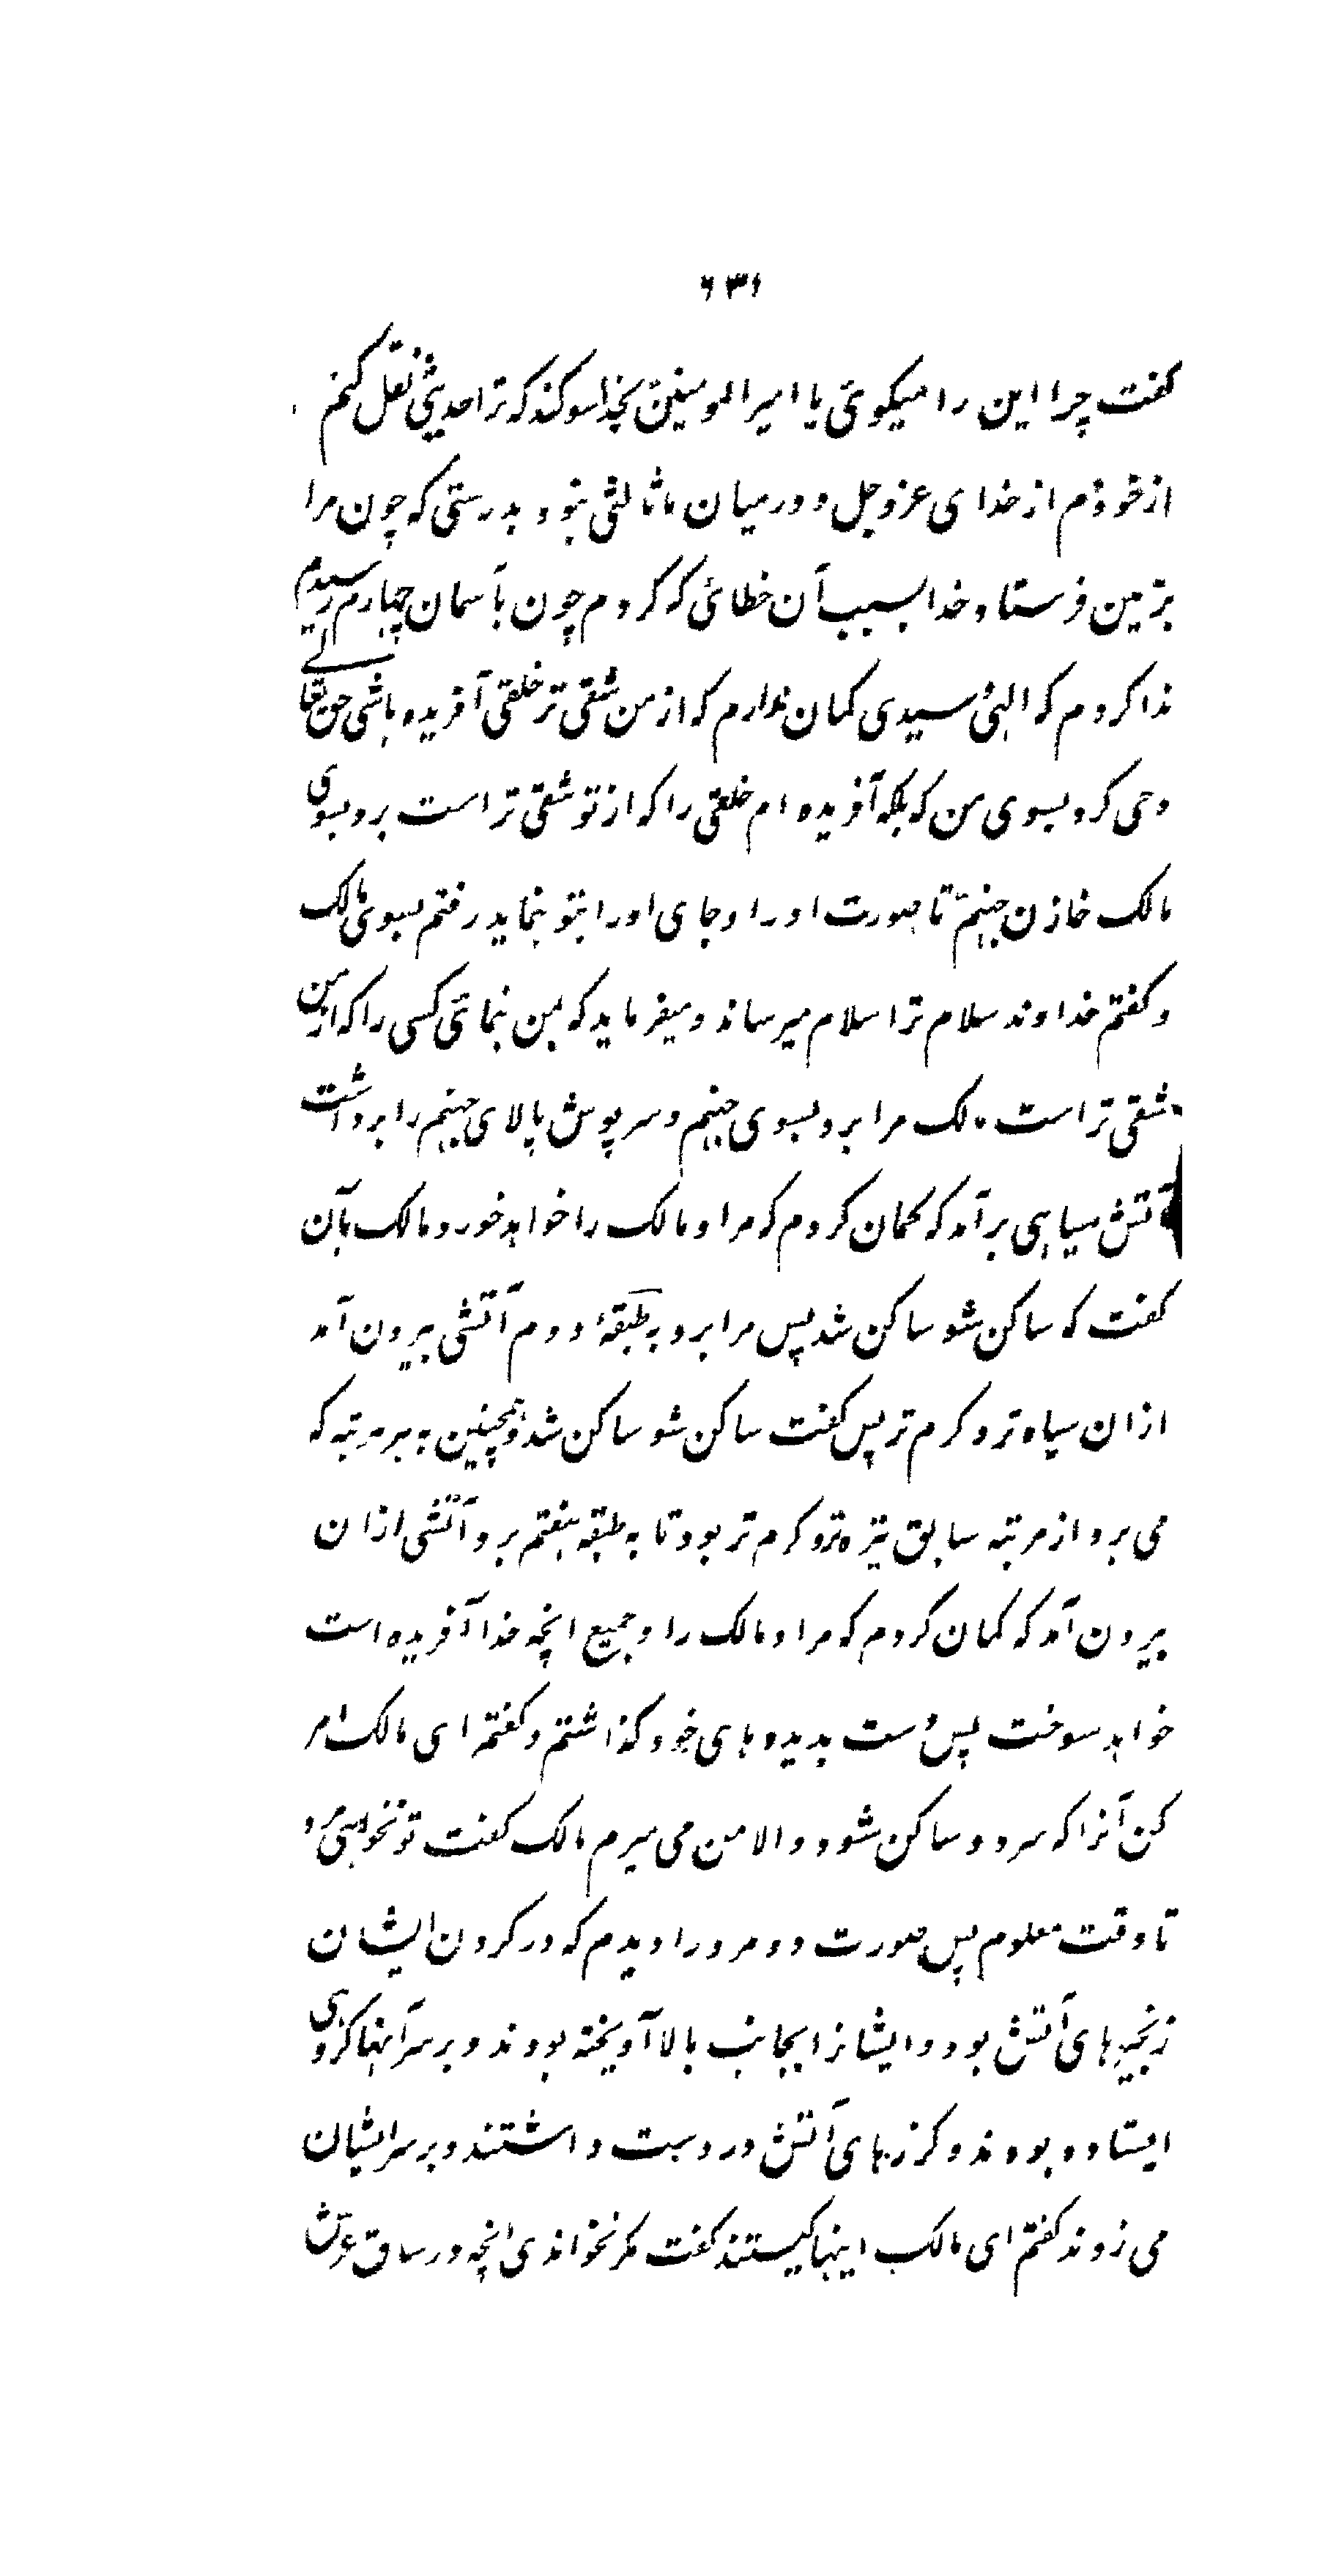 ۶۳۱
گفت چرا این را میگوئی یا امیرالمومنین بخدا سوگند که ترا حدیثی نقل کنم
از خودم از خدای عزوجل و در میان ما ثالثی نبود بدرستی که چون مرا
بزمین فرستاد خدا بسبب آن خطائی که کردم چون بآسمان چهارم رسیدم
ندا کردم که الهی سیدی گمان ندارم که از من شقی تر خلقی آفریده باشی حق تعالی
وحی کرد بسوی من که بلکه آفریده ام خلقی را که از تو شقی تر است برو بسوی
مالک خازن جهنم تا صورت او را و جای او را بتو بنماید رفتم بسوی مالک
و گفتم خداوند سلام ترا سلام میرساند و میفرماید که بمن بنمائی کسی را که از من
شقی تر است مالک مرا برد بسوی جهنم و سرپوش بالای جهنم را برداشت
آتش سیاهی برآمد که گمان کردم که مرا و مالک را خواهد خورد مالک بآن
گفت که ساکن شو ساکن شد پس مرا برد به طبقهٔ دوم آتشی بیرون آمد
ازان سیاه تر و گرم تر پس گفت ساکن شو ساکن شد و همچنین به هر مرتبه که
می برد از مرتبه سابق تیره تر و گرم تر بود تا به طبقه هفتم برد آتشی ازان
بیرون آمد که گمان کردم که مرا و مالک را و جمیع انچه خدا آفریده است
خواهد سوخت پس دست بدیده های خود گذاشتم و گفتم ای مالک امر
کن آنرا که سرد و ساکن شود و الا من می میرم مالک گفت تو نخواهی مرد
تا وقت معلوم پس صورت دو مرد را دیدم که در گردن ایشان
زنجیرهای آتش بود و ایشانرا بجانب بالا آویخته بودند و بر سر آنها گروهی
ایستاده بودند و گرزهای آتش در دست داشتند و بر سر ایشان
می زدند گفتم ای مالک اینها کیستند گفت مگر نخواندی انچه در ساق عرش